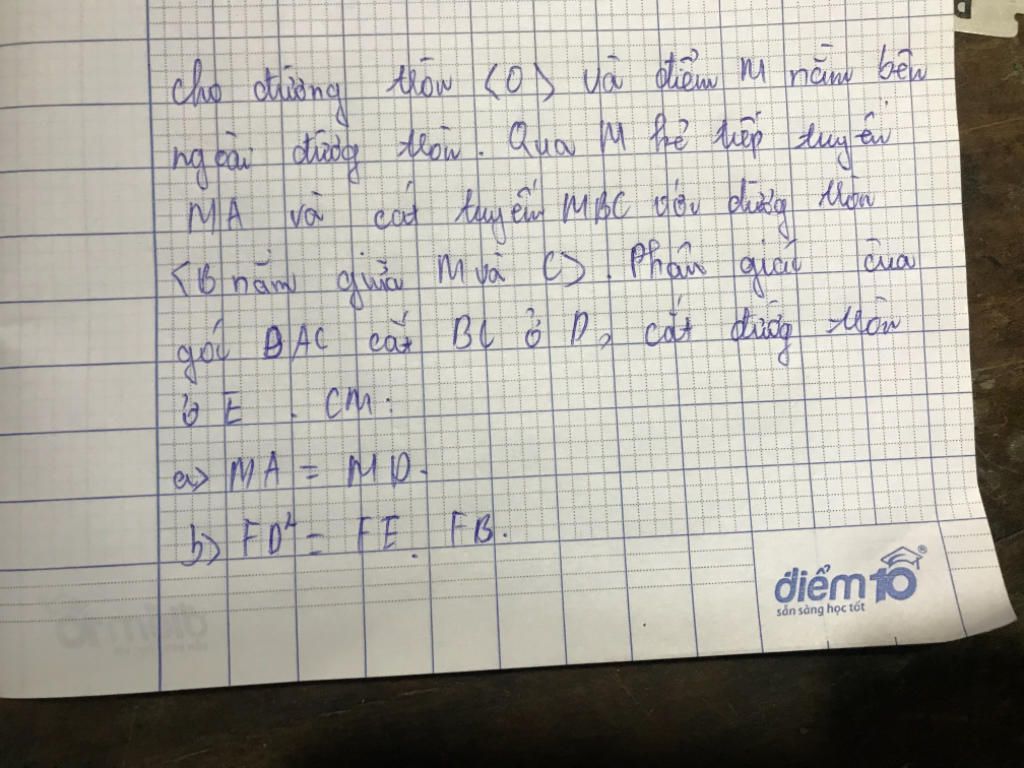 Cho đường tròn (O) và điểm M nằm bên
ngoài đường tròn. Qua M kẻ tiếp tuyến
MA và cát tuyến MBC với đường tròn
(B nằm giữa M và C). Phân giác của
góc BAC cắt BC ở D, cắt đường tròn
ở E. CM:
a) MA = MD.
b) FD² = FE. FB.
điểm10
sẵn sàng học tốt